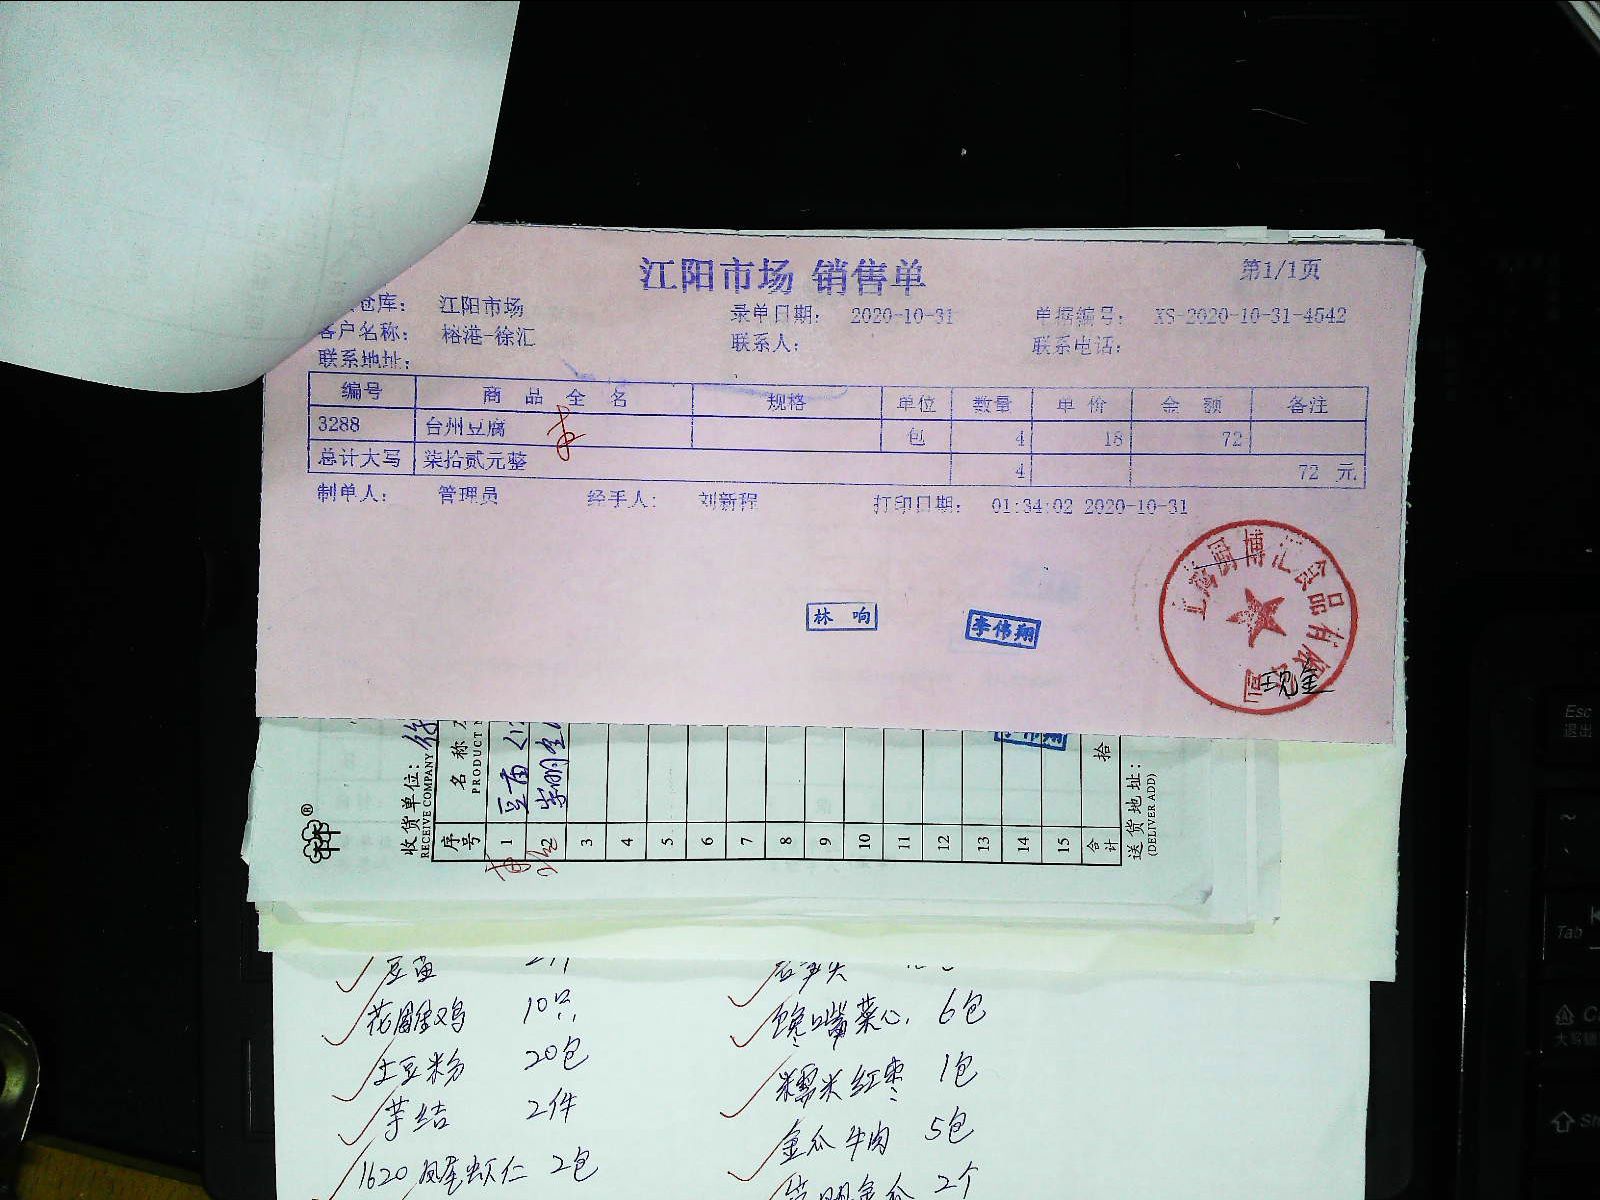 江阳市场 销售单
第1/1页
仓库： 江阳市场 录单日期： 2020-10-31 单据编号： XS-2020-10-31-4542
客户名称： 榕港-徐汇 联系人： 联系电话：
联系地址：
编号 商品全名 规格 单位 数量 单价 金额 备注
3288 台州豆腐 包 4 18 72
总计大写 柒拾贰元整 4 72 元
制单人： 管理员 经手人： 刘新程 打印日期： 01:34:02 2020-10-31
林响
李伟翔
博汇食品有限公司
现金
收货单位：
RECEIVE COMPANY
序号 名称
PRODUCT
1 豆苗
2 崇明
3
4
5
6
7
8
9
10
11
12
13
14
15
合计 拾
送货地址：
(DELIVER ADD)
花雕鸡 10只
土豆粉 20包
芋结 2件
1620凤尾虾仁 2包
馋嘴菜心 6包
糯米红枣 1包
金瓜牛肉 5包
2个
Esc
退出
Tab